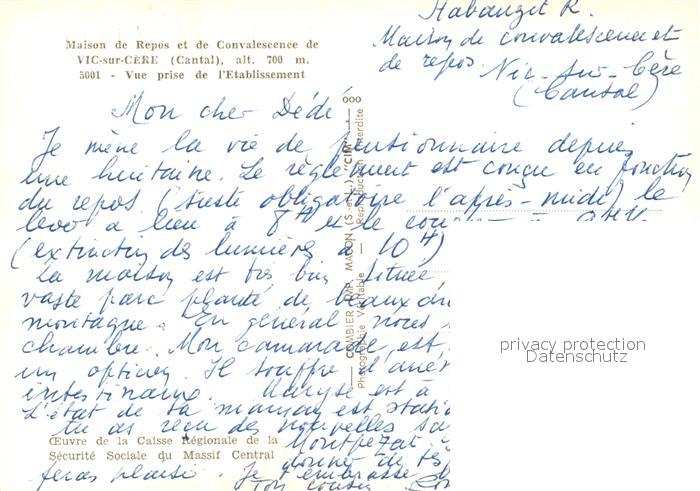 Habauzit R.
Maison de convalescence et
de repos
Vic-sur-Cère
(Cantal)
Maison de Repos et de Convalescence de
VIC-sur-CÈRE (Cantal), alt. 700 m.
5001 - Vue prise de l'Etablissement
Mon cher Dédé,
Je mène la vie de pensionnaire depuis
une huitaine. Le règlement est conçu en fonction
du repos (sieste obligatoire l'après-midi) le
lever a lieu à 8H et le coucher à
(extinction des lumières à 10H)
La maison est très bien située
vaste parc planté de beaux
montagne. En général nous
chambre. Mon camarade est
un opticien. Il souffre
intestinaux. est à
L'état de sa maman est
tu as reçu des nouvelles
Montpezat
donner de tes
feras plaisir. Je t'embrasse
Ton cousin
COMBIER IMP. MACON (S.-et-L.) "CIM"
Photographie Véritable - Reproduction Interdite
Œuvre de la Caisse Régionale de la
Sécurité Sociale du Massif Central
privacy protection
Datenschutz